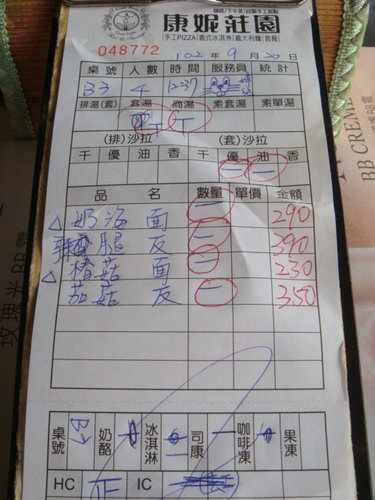 康妮莊園
手工PIZZA|義式冰淇淋|義大利麵|套餐
048772
102年9月20日
桌號 人數 時間 服務員 統計
B3 4 12:37
排湯(套) 套湯 商湯 素套湯 素單湯
(排)沙拉 (套)沙拉
千 優 油 香 千 優 油 香
一 一
品名 數量 單價 金額
奶海面 一 290
腿友 一 390
椿菇面 一 230
茄菇友 一 350
桌號 奶酪 冰淇淋 司康 咖啡凍 果凍
HC 正 IC
玫瑰米BB霜
BB CREME